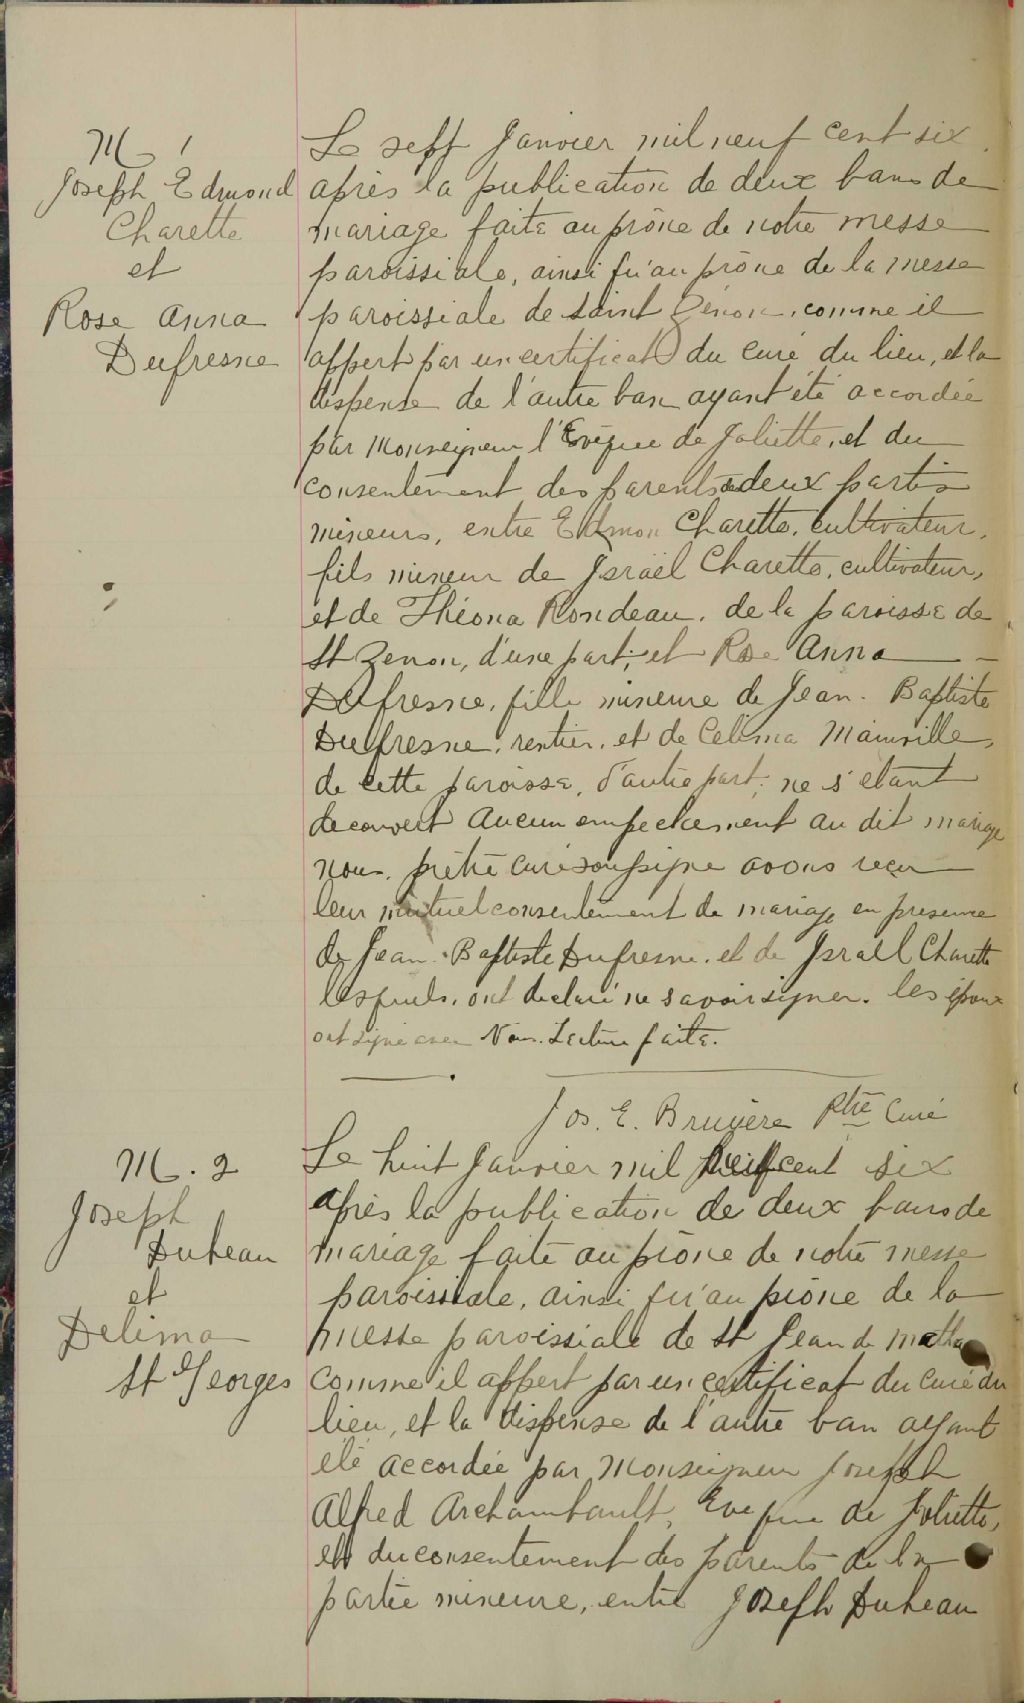 M. 1
Joseph Edmond
Charette
et
Rose Anna
Dufresne
Le sept Janvier mil neuf cent six
après la publication de deux bans de
mariage faite au prône de notre messe
paroissiale, ainsi qu'au prône de la messe
paroissiale de saint Zénon, comme il
appert par un certificat du curé du lieu, et la
dispense de l'autre ban ayant été accordée
par Monseigneur l'Evêque de Joliette, et du
consentement des parents des deux parties
mineurs, entre Edmon Charette, cultivateur,
fils mineur de Israël Charette, cultivateur,
et de Théona Rondeau, de la paroisse de
St Zenon, d'une part; et Rose Anna
Dufresne, fille mineure de Jean-Baptiste
Dufresne, rentier, et de Celima Mainville,
de cette paroisse, d'autre part; ne s'etant
decouvert aucun empechement au dit mariage
nous, prêtre curé soussigné avons reçu
leur mutuel consentement de mariage en presence
de Jean-Baptiste Dufresne, et de Israël Charette
lesquels, ont declaré ne savoir signer. les époux
ont signé avec Nous. Lecture faite.
Jos. E. Bruyère Ptre Curé
M. 2
Joseph
Dubeau
et
Delima
St Georges
Le huit Janvier mil neuf cent six
après la publication de deux bans de
mariage faite au prône de notre messe
paroissiale, ainsi qu'au prône de la
messe paroissiale de St Jean de Matha
comme il appert par un certificat du curé du
lieu, et la dispense de l'autre ban ayant
été accordée par Monseigneur Joseph
Alfred Archambault, Eveque de Joliette,
et du consentement des parents de la
partie mineure, entre Joseph Dubeau